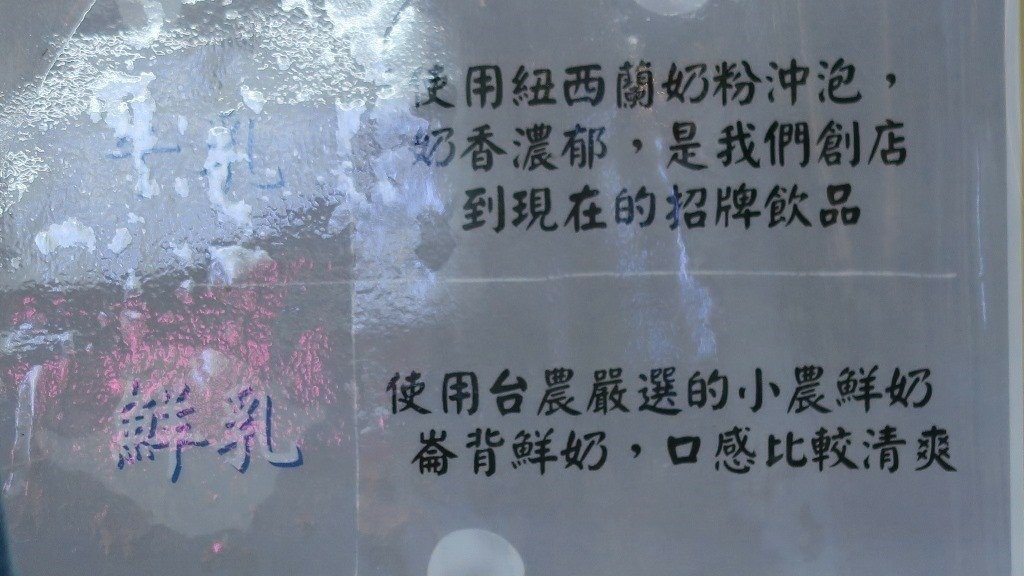 牛乳
使用紐西蘭奶粉沖泡，
奶香濃郁，是我們創店
到現在的招牌飲品
鮮乳
使用台農嚴選的小農鮮奶
崙背鮮奶，口感比較清爽